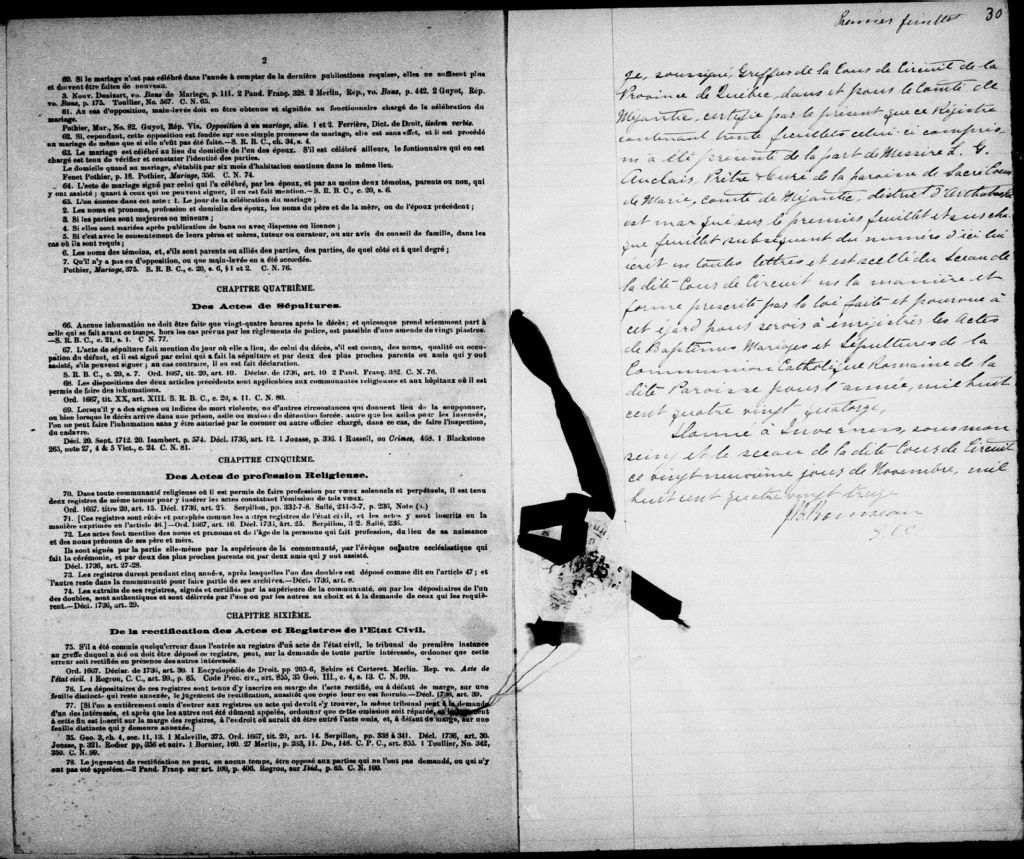 2
60. Si le mariage n'est pas célébré dans l'année à compter de la dernière publications requises, elles ne suffisent plus
et doivent être faites de nouveau.
3. Nouv. Denizart, vo. Bans de Mariage, p. 111. 2 Pand. Franç. 328. 2 Merlin, Rép., vo. Bans, p. 442. 2 Guyot, Rép.
vo. Bans, p. 175. Toullier, No. 567. C. N. 65.
61. Au cas d'opposition, main-levée doit en être obtenue et signifiée au fonctionnaire chargé de la célébration du
mariage.
Pothier, Mar., No. 82. Guyot, Rép. Vis. Opposition à un mariage, alin. 1 et 2. Ferrière, Dict. de Droit, iisdem verbis.
62. Si, cependant, cette opposition est fondée sur une simple promesse de mariage, elle est sans effet, et il est procédé
au mariage de même que si elle n'eût pas été faite.—S. R. B. C., ch. 34, s. 4.
63. Le mariage est célébré au lieu du domicile de l'un des époux. S'il est célébré ailleurs, le fontionnaire qui en est
chargé est tenu de vérifier et constater l'identité des parties.
Le domicile quand au mariage, s'établit par six mois d'habitation continue dans le même lieu.
Fenet Pothier, p. 18. Pothier, Mariage, 356. C. N. 74.
64. L'acte de mariage signé par celui qui l'a célébré, par les époux, et par au moins deux témoins, parents ou non, qui
y ont assisté; quant à ceux qui ne peuvent signer, il en est fait mention.—S. R. B. C., c. 20, s. 6.
65. L'on énonce dans cet acte: 1. Le jour de la célébration du mariage;
2. Les noms et pronoms, profession et domicile des époux, les noms du père et de la mère, ou de l'époux précédent;
3. Si les parties sont majeures ou mineures;
4. Si elles sont mariées après publication de bans ou avec dispense ou licence;
5. Si c'est avec le consentement de leurs pères et mères, tuteur ou curateur, ou sur avis du conseil de famille, dans les
cas où ils sont requis;
6. Les noms des témoins, et, s'ils sont parents ou alliés des parties, des parties, de quel côté et à quel degré;
7. Qu'il n'y a pas eu d'opposition, ou que main-levée en a été accordée.
Pothier, Mariage, 375. S. R. B. C., c. 20, s. 6, § 1 et 2. C. N. 76.
CHAPITRE QUATRIÈME.
Des Actes de Sépultures.
66. Aucune inhumation ne doit être faite que vingt-quatre heures après le décès; et quiconque prend sciemment part à
celle qui se fait avant ce temps, hors les cas prévus par les règlements de police, est passible d'une amende de vingt piastres.
—S. R. B. C., c. 21, s. 1. C N. 77.
67. L'acte de sépulture fait mention du jour où elle a lieu, de celui du décès, s'il est connu, des noms, qualité ou occu-
pation du défunt, et il est signé par celui qui a fait la sépulture et par deux des plus proches parents ou amis qui y ont
assisté, s'ils peuvent signer; au cas contraire, il en est fait déclaration.
S. R. B. C., c. 20, s. 7. Ord. 1667, tit. 20, art. 10. Déclar. de 1736, art. 10 2 Pand. Franç. 382. C. N. 76.
68. Les dispositions des deux articles précédents sont applicables aux communautés religieuses et aux hôpitaux où il est
permis de faire des inhumations.
Ord. 1667, tit. XX, art. XIII. S. R. B. C., c. 20, s. 11. C. N. 80.
69. Lorsqu'il y a des signes ou indices de mort violente, ou d'autres circonstances qui donnent lieu de la soupçonner,
ou bien lorsque le décès arrive dans une prison, asile ou maison de détention forcée, autre que les asiles pour les insensés,
l'on ne peut faire l'inhumation sans y être autorisé par le coroner ou autre officier chargé, dans ce cas, de faire l'inspection,
du cadavre.
Déci. 20. Sept. 1712. 20. Isambert, p. 574. Décl. 1736, art. 12. 1 Jousse, p. 306. 1 Russell, ou Crimes, 468. 1 Blackstone
265, note 27, 4 & 5 Vict., c. 24. C. N. 81.
CHAPITRE CINQUIÈME.
Des Actes de profession Religieuse.
70. Dans toute communauté religieuse où il est permis de faire profession par vœux solennels et perpétuels, il est tenu
deux registres de même teneur pour y insérer les actes constatant l'émission de tels vœux.
Ord. 1667. titre 20, art. 15. Décl. 1736, art. 25. Serpillon, pp. 332-7-8. Sallé, 231-5-7, p. 236, Note (a.)
71. [Ces registres sont cotés et paraphés comme les autres registres de l'état civil, et les actes y sont inscrits en la
manière exprimée en l'article 46.]—Ord. 1667, art. 16. Décl. 1736, art. 25. Serpillon, 342. Sallé, 236.
72. Les actes font mention des noms et pronoms et de l'âge de la personne qui fait profession, du lieu de sa naissance
et des noms prénoms de ses père et mère.
Ils sont signés par la partie elle-même par la supérieure de la communauté, par l'évêque ou autre ecclésiastique qui
fait la cérémonie, et par deux des plus proches parents ou par deux amis qui y ont assisté.
Décl. 1736, art. 27-28.
73. Les registres durent pendant cinq années, après lesquelles l'un des doubles est déposé comme dit en l'article 47; et
l'autre reste dans la communauté pour faire partie de ses archives.—Décl. 1736, art. 8.
74. Les extraits de ses registres, signés et certifiés par la supérieure de la communauté, ou par les dépositaires de l'un
des doubles, sont authentiques et sont délivrés par l'une ou par les autres au choix et à la demande de ceux qui les requiè-
rent.—Déci. 1736, art. 29.
CHAPITRE SIXIÈME.
De la rectification des Actes et Registres de l'Etat Civil.
75. S'il a été commis quelqu'erreur dans l'entrée au registre d'un acte de l'état civil, le tribunal de première instance
au greffe duquel a été ou doit être déposé ce registre, peut, sur la demande de toute partie intéressée, ordonner que cette
erreur soit rectifiée en présence des autres intéressés.
Ord. 1667. Déclar. de 1736, art. 30. 1 Encyclopédie de Droit. pp. 205-6, Sebire et Carteret. Merlin. Rep. vo. Acte de
l'état civil. 1 Rogron, C. C., art. 99., p. 85. Code Proc. civ., art. 855, 35 Geo. III., c. 4, s. 13. C. N. 99.
76. Les dépositaires de ces registres sont tenus d'y inscrire en marge de l'acte rectifié, ou à défaut de marge, sur une
feuille distincte qui reste annexée, le jugement de rectification, aussitôt que copie leur en est fournie.—Décl. 1736, art. 30.
77. [Si l'on a entièrement omis d'entrer aux registres un acte qui devait s'y trouver, le même tribunal peut à la demande
d'un des intéressés, et après que les autres ont été dûment appelés, ordonner que cette omission soit réparée,
à cette fin est inscrit sur la marge des registres, à l'endroit où aurait dû être entré l'acte omis, et, à défaut de marge, sur une
feuille distincte qui y demeure annexée.]
35. Geo. 3, ch. 4, sec. 11, 13. 1 Maleville, 375. Ord. 1667, tit. 20, art. 14. Serpillon, pp. 338 à 341. Décl. 1736, art. 30.
Jousse, p. 321. Rodier pp, 356 et suiv. 1 Bornier, 160. 27 Merlin, p. 263, 11. Do., 148. C. P. C., art. 855. 1 Toullier, No. 342,
350. C. N. 99.
78. Le jugement de rectification ne peut, en aucun temps, être opposé aux parties qui ne l'ont pas demandé, ou qui n'y
ont pas été appelées.—2 Pand. Franç. sur art. 100, p. 406. Rogron, sur Ibid., p. 85. C. N. 100.
Premier feuillet 30
Je, soussigné, Greffier de la Cour de Circuit de la
Province de Québec, dans et pour le Comté de
Mégantic, certifie par le présent que ce Registre
contenant trente feuillets celui ci compris
m'a été présenté de la part de Messire L. G.
Auclair, Prêtre & Curé de la paroisse de Sacré Coeur
de Marie, comté de Mégantic, district d'Arthabaska
est marqué sur le premier feuillet et sur cha-
que feuillet subséquent du numéro d'ici lui
écrit en toutes lettres et est scellé du Sceau de
la dite Cour de Circuit en la manière et
forme prescrite par la loi faite et pourvue à
cet égard pour servir à enregistrer les Actes
de Baptêmes Mariages et Sépultures de la
Communion Catholique Romaine de la
dite Paroisse pour l'année, mil huit
cent quatre vingt quatorze,
Donné à Inverness, sous mon
seing et le sceau de la dite Cour de Circuit
ce vingt neuvième jour de Novembre, mil
huit cent quatre vingt treize
G. C. C.